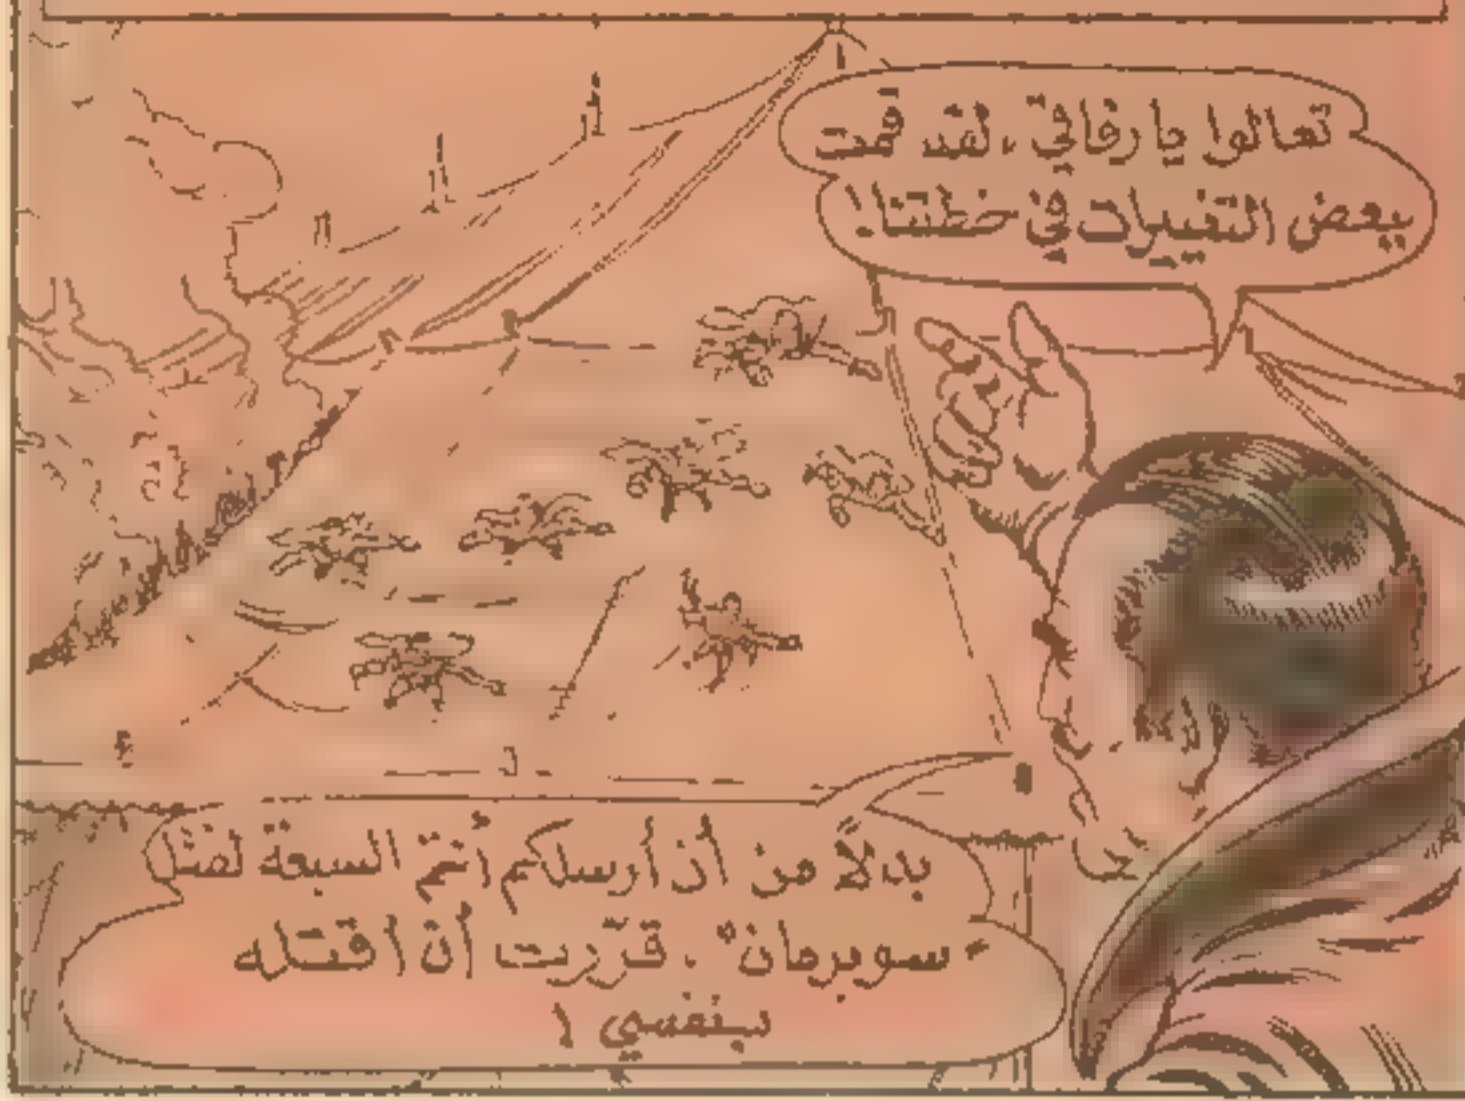 تعالوا يا رفاقي ، لقد قمت
ببعض التغييرات في خطتنا !
بدلاً من أن أرسلكم أنتم السبعة لقتل
"سوبرمان" ، قرّرت أن أقتله
بنفسي !